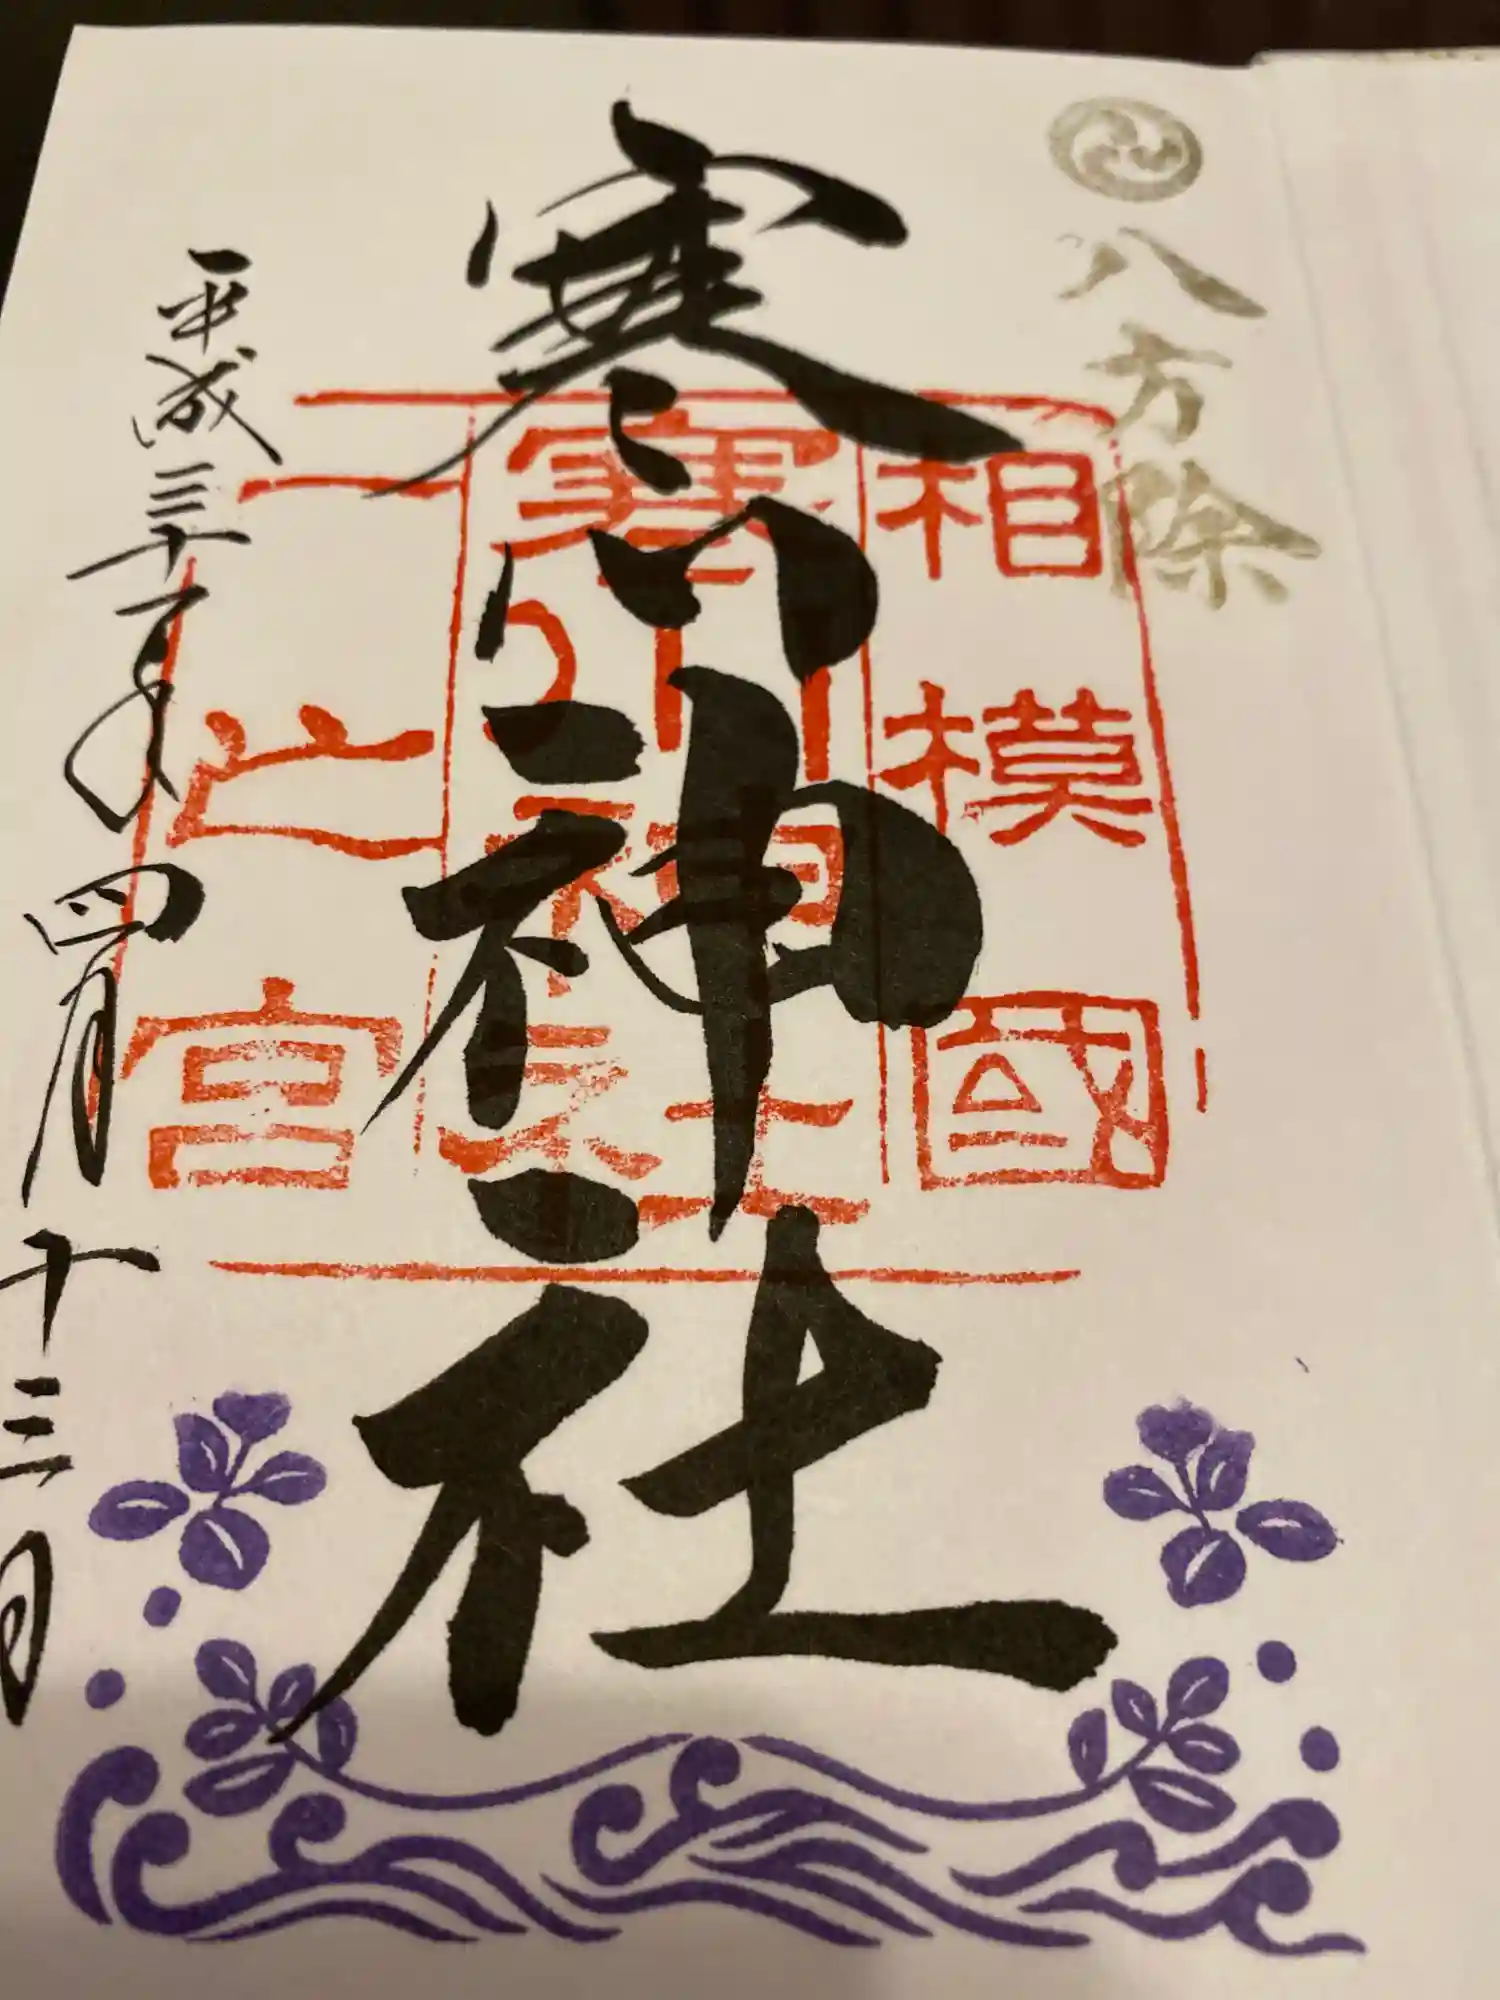 八方除
相模國
寒川神社
寒川神社
一之宮
平成三十一年四月十三日